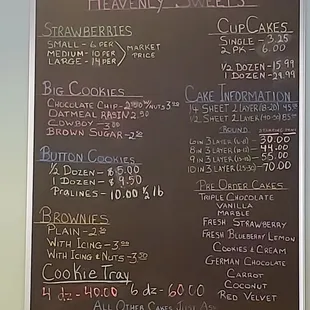 HEAVENLY SWEETS
STRAWBERRIES
SMALL - 6 PER
MEDIUM - 10 PER
LARGE - 14 PER
MARKET
PRICE
BIG COOKIES
CHOCOLATE CHIP - NUTS
OATMEAL RAISIN
COWBOY - 3.00
BROWN SUGAR - 2.50
BUTTON COOKIES
1/2 DOZEN - $5.00
1 DOZEN - $9.50
PRALINES - 10.00 1/2 lb
BROWNIES
PLAIN -
WITH ICING - 3.00
WITH ICING & NUTS - 3.50
COOKIE TRAY
4 dz - 40.00 6 dz - 60.00
CUPCAKES
SINGLE - 3.25
2 PK - 6.00
1/2 DOZEN - 15.99
1 DOZEN - 29.99
CAKE INFORMATION
14 SHEET 2 LAYER
12 SHEET 2 LAYER
ROUND
6 IN 3 LAYER 30.00
8 IN 3 LAYER 44.00
9 IN 3 LAYER 55.00
10 IN 3 LAYER 70.00
PRE ORDER CAKES
TRIPLE CHOCOLATE
VANILLA
MARBLE
FRESH STRAWBERRY
FRESH BLUEBERRY LEMON
COOKIES & CREAM
GERMAN CHOCOLATE
CARROT
COCONUT
RED VELVET
ALL OTHER CAKES JUST ASK